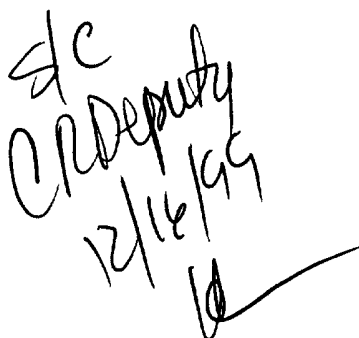 s/c
CRDeputy
12/16/99